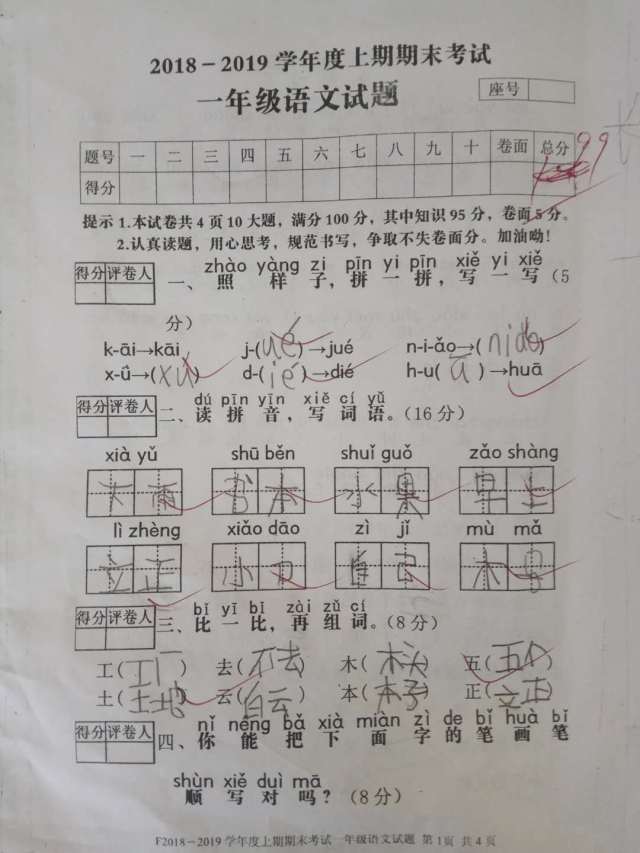 2018－2019学年度上期期末考试
一年级语文试题
座号
题号 一 二 三 四 五 六 七 八 九 十 卷面 总分
得分
99
提示 1.本试卷共4页10大题，满分100分，其中知识95分，卷面5分。
2.认真读题，用心思考，规范书写，争取不失卷面分。加油呦！
得分 评卷人
zhào yàng zi pīn yi pīn xiě yi xiě
一、照样子，拼一拼，写一写（5
分）
k-āi→kāi j-(ué)→jué n-i-ǎo→(niǎo)
x-ǖ→(xū) d-(ié)→dié h-u(ā)→huā
得分 评卷人
dú pīn yīn xiě cí yǔ
二、读拼音，写词语。（16分）
xià yǔ shū běn shuǐ guǒ zǎo shàng
下雨 书本 水果 早上
lì zhèng xiǎo dāo zì jǐ mù mǎ
立正 小刀 自己 木马
得分 评卷人
bǐ yī bǐ zài zǔ cí
三、比一比，再组词。（8分）
工(工厂) 去(不去) 木(木头) 五(五个)
土(土地) 云(白云) 本(本子) 正(立正)
得分 评卷人
nǐ néng bǎ xià miàn zì de bǐ huà bǐ
四、你能把下面字的笔画笔
shùn xiě duì mā
顺写对吗？（8分）
F2018－2019学年度上期期末考试 一年级语文试题 第1页 共4页